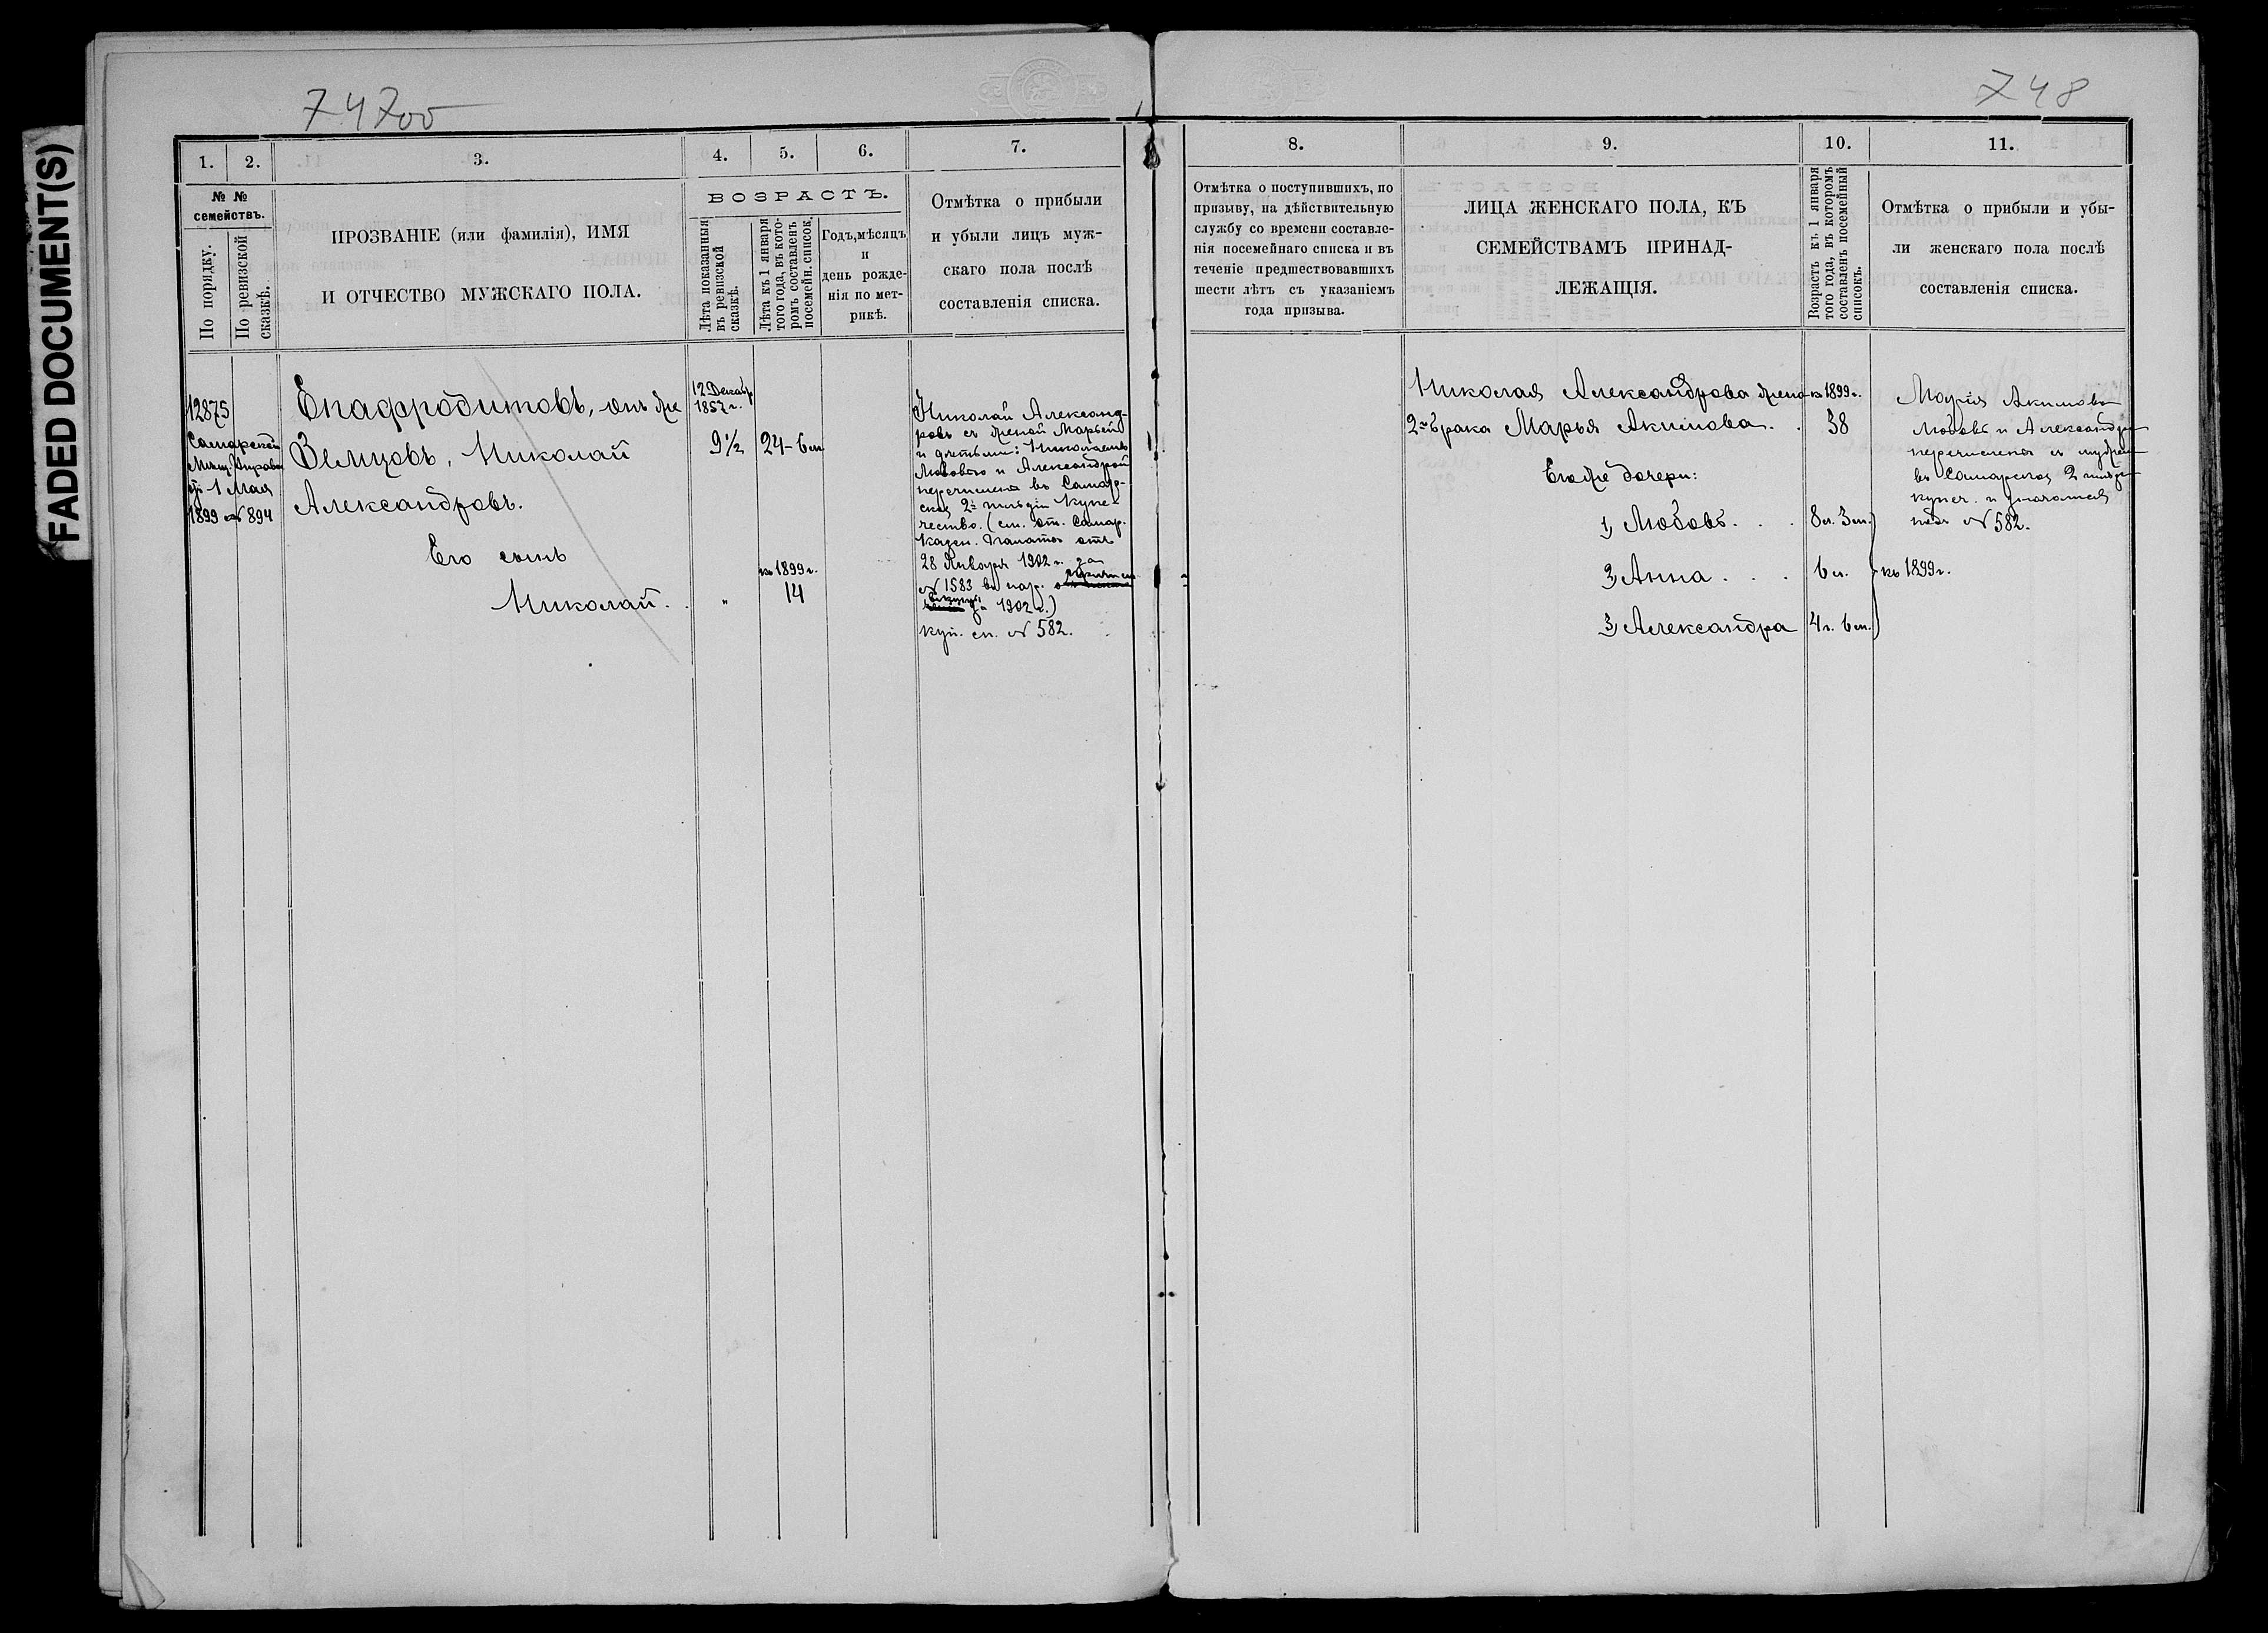 FADED DOCUMENT(S)
747об
748
1.
2.
3.
4.
5.
6.
7.
8.
9.
10.
11.
№ №
семействъ.
По порядку.
По ревизской
сказкѣ.
ПРОЗВАНІЕ (или фамилія), ИМЯ
И ОТЧЕСТВО МУЖСКАГО ПОЛА.
ВОЗРАСТЪ.
Лѣта показанныя
въ ревизской
сказкѣ.
Лѣта къ 1 января
того года, въ кото-
ромъ составленъ
посемейн. список.
Годъ, мѣсяцъ
и
день рожде-
нія по мет-
рикѣ.
Отмѣтка о прибыли
и убыли лицъ муж-
скаго пола послѣ
составленія списка.
Отмѣтка о поступившихъ, по
призыву, на дѣйствительную
службу со времени составле-
нія посемейнаго списка и въ
теченіе предшествовавшихъ
шести лѣтъ съ указаніемъ
года призыва.
ЛИЦА ЖЕНСКАГО ПОЛА, КЪ
СЕМЕЙСТВАМЪ ПРИНАД-
ЛЕЖАЩІЯ.
Возрастъ къ 1 января
того года, въ которомъ
составленъ посемейный
списокъ.
Отмѣтка о прибыли и убы-
ли женскаго пола послѣ
составленія списка.
12875
Самарской
Мѣщ. Управы
от 1 Мая
1899 № 894
Епафродитовъ, онъ же
Земцовъ, Николай
Александровъ.
Его сынъ
Николай.
12 Декабр
1857 г.
9½
24-6 м
къ 1899 г.
"
14
Николай Александ-
ровъ съ женой Марьей
и дѣтьми: Николаемъ
Любовью и Александрой
перечислены въ Самар-
ское 2й гильдіи купе-
чество. (см. от. Самар.
Казен. Палаты отъ
28 Января 1902 г. за
№ 1583 въ нар.
за 1902 г.)
куп. сп. № 582.
Николая Александрова жена
2го брака Марья Акимова.
Ею же дочери:
1, Любовь
2, Анна
3, Александра
къ 1899 г.
38
8 л. 3 м.
6 л.
4 г. 6 м.
къ 1899 г.
Марія Акимова
Любовь и Александра
перечислены съ мужем
въ Самарское 2 гильд.
купеч. и значатся
подъ № 582.